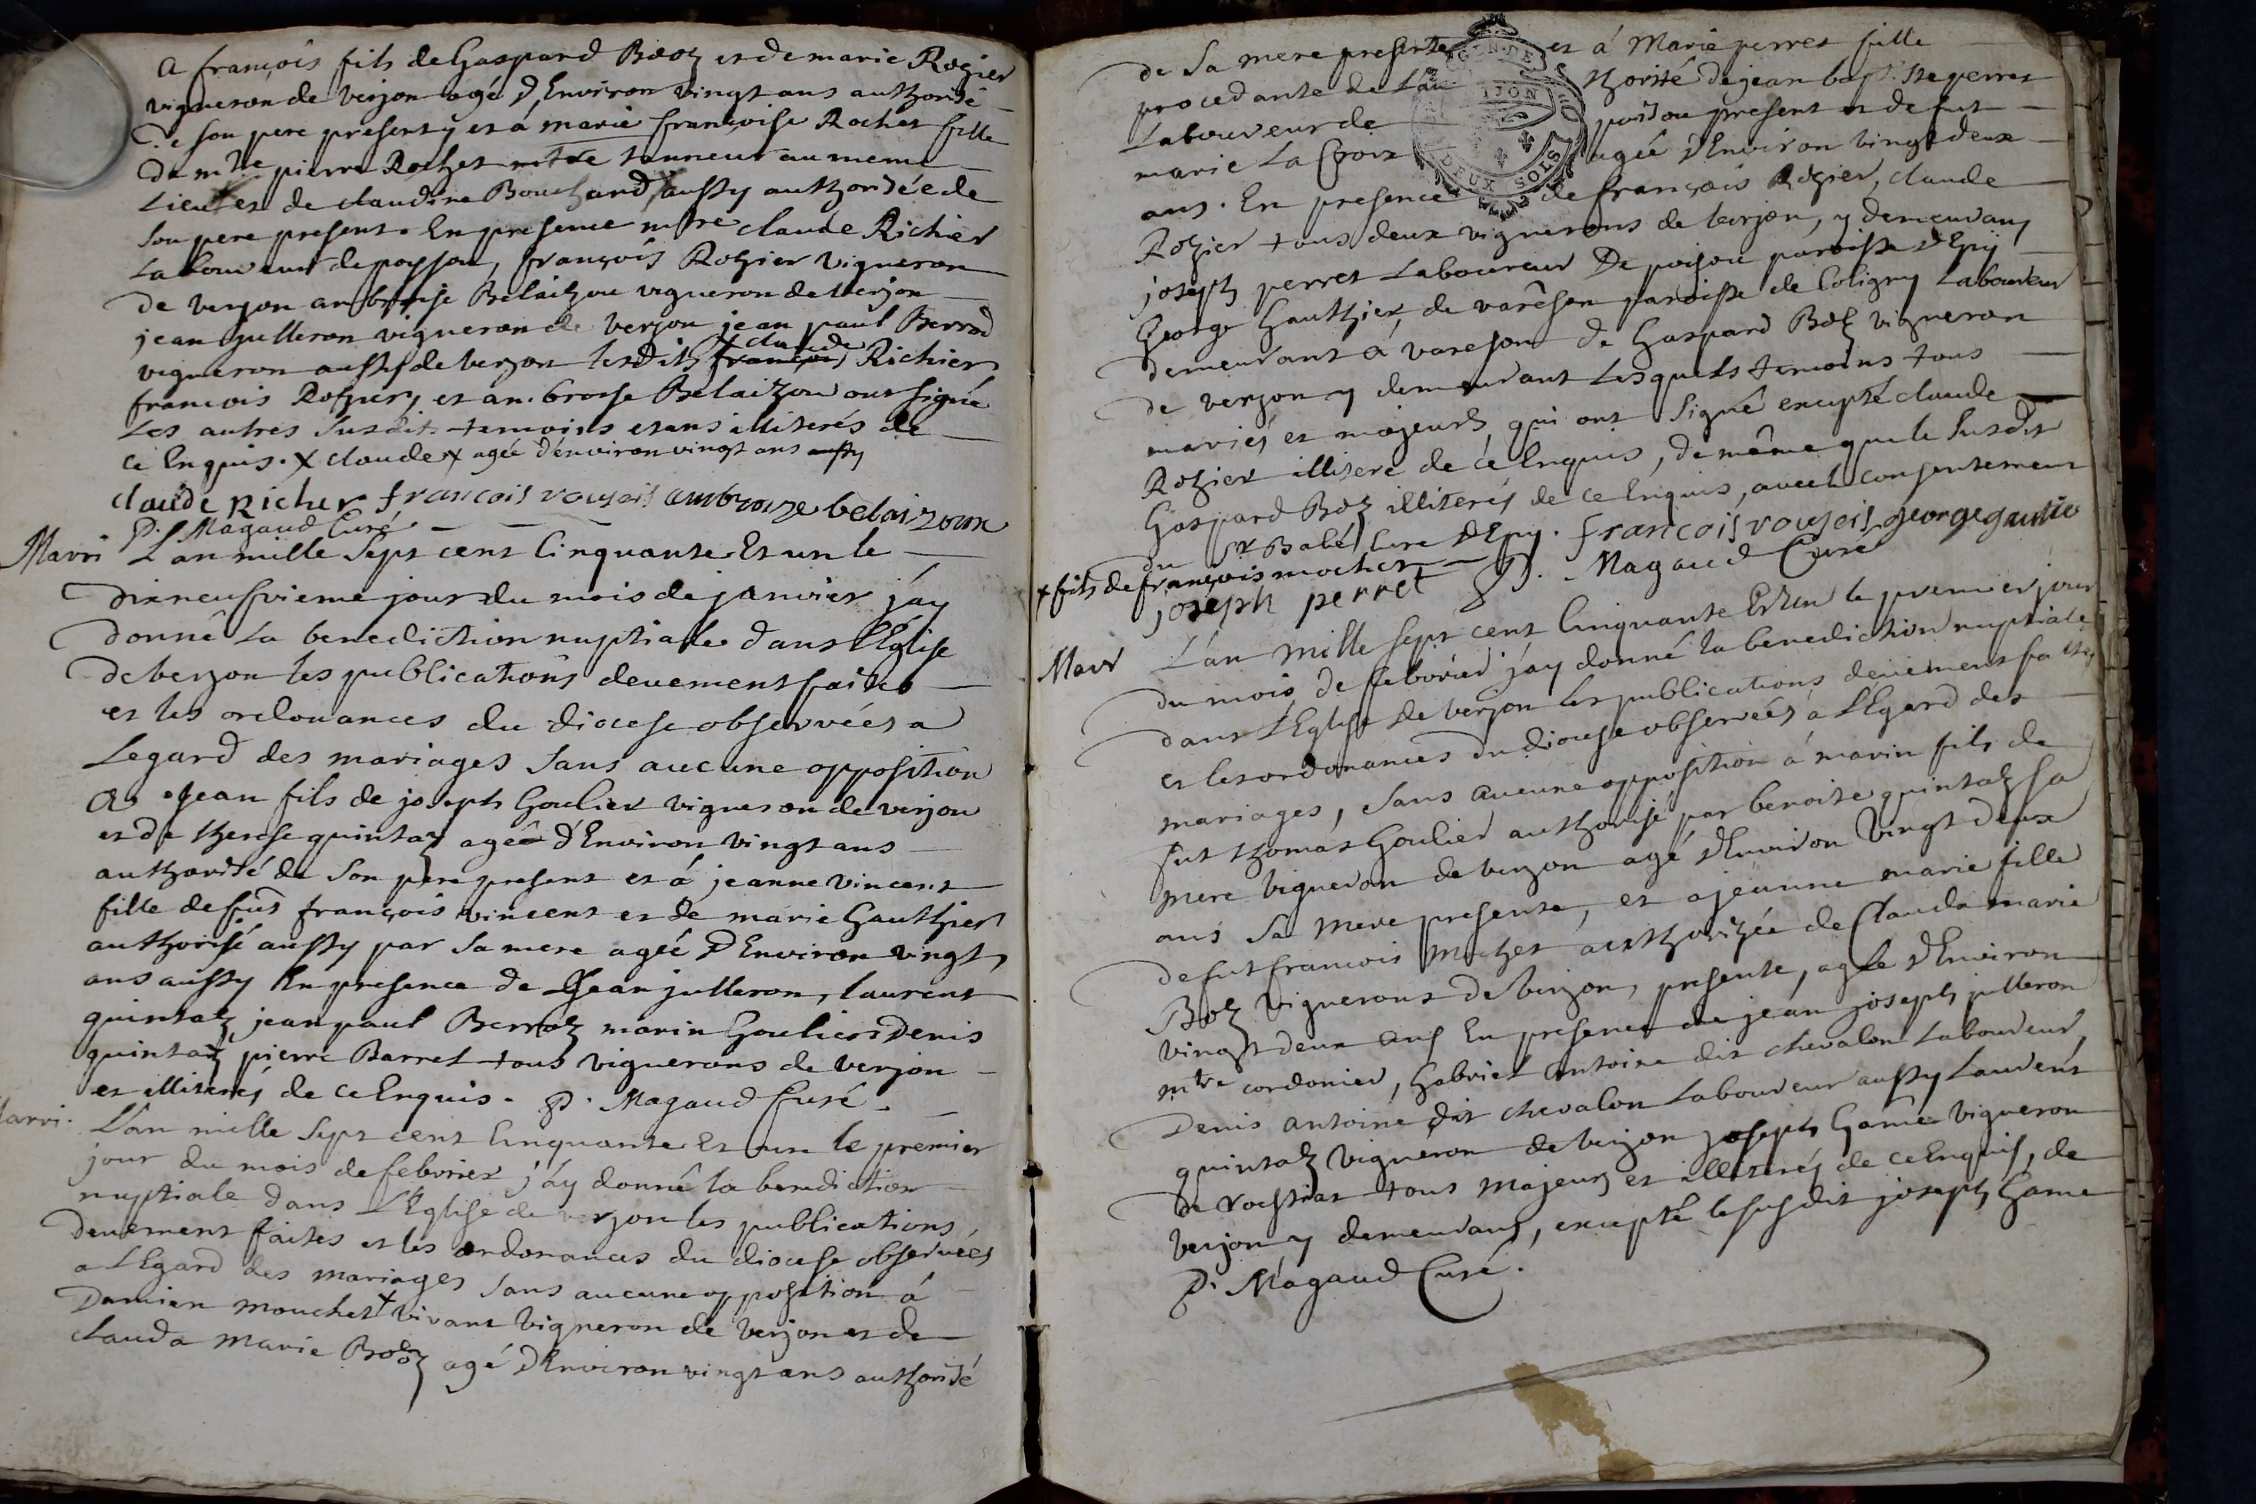 A françois fils de Gaspard Booz et de marie Rozier
vigneron de verjon agé d'Environ vingt ans authorisé
De son pere present y et á marie françoise Rochet fille
De mtre pierre Rochet mtre tanneur au meme
Lieu et de claudine Bouchard aussy authorisée de
son pere present. En presence mtre claude Richier
Laboureur de poysou, françois Rozier vigneron
de verjon ambroise Belaizou vigneron de Verjon
jean julleron vigneron de verjon jean paul Berrod
x claude
vigneron aussy de verjon lesdits françois Richier
francois Rozier, et ambroise Belaizou ont signé
Les autres susdits temoins etans illiterés de
ce Enquis. x claude x agée d'environ vingt ans aussy
claude Richer francois rousois ambroize belaizoux
P. Magaud Curé
Mari L'an mille Sept cent Cinquante Et un le
dixneufvieme jour du mois de janvier j'áy
donné La benediction nuptiale dans l'Eglise
de verjon les publications deuement faites
et les ordonances du diocese observées a
Legard des mariages sans aucune opposition
A Jean fils de joseph Goulier vigneron de verjon
et de therese quintaz agé d'Environ vingt ans
authorisé de son pere present et á jeanne vincent
fille de fut françois vincent et de marie Gauthier
authorisé aussy par sa mere agée d'Environ vingt
ans aussy En presence de Jean julleron, laurent
quintaz, jean paul Berroz marin Goulier Denis
quintaz pierre Barret tous vignerons de verjon
et illiterés de ce Enquis. P. Magaud Curé.
Mari. L'an mille Sept cent Cinquante Et un le premier
jour du mois de febvrier j'áy donné la benediction
nuptiale dans l'Eglise de verjon les publications
deuement faites et les ordonances du diocese observées
a l'Egard des mariages sans aucune opposition á
Damien mouchet + vivant vigneron de verjon et de
clauda marie Booz agé d'Environ vingt ans authorisé
de Sa mere presente et á Marie perret fille
procedante de l'authorité de jean baptiste perret
Laboureur de poisou present et de fut
marie La Croix agée d'Environ vingt deux
ans. En presence de françois Rozier, claude
Rozier tous deux vignerons de verjon, y demeurans
joseph perret Laboureur De poisou paroisse d'Epÿ
George Gauthier, de varéson paroisse de Coligny Laboureur
demeurant á vareson de Gaspard Boz vigneron
de verjon y demeurant Lesquels temoins tous
mariés et majeurs, qui ont Signé excepté claude
Rozier illiteré de ce Enquis, de même que le Susdit
Gaspard Boz illiterés de ce Enquis, avec le consentement
du Sr Babé Cure d'Epy. francois rousois george gautie
x fils de françois mochet
joseph perret P. Magaud Curé
Mari L'án mille sept cent Cinquante Et Un le premier jour
du mois de febvrier j'áy donné la benediction nuptiale
dans l'Eglise de verjon les publications deuement faites
et les ordonances du diocese observées a l'Egard des
mariages, sans aucune opposition á marin fils de
fut thomas Goulier authorisé par benoite quintaz sa
mere vigneron de verjon agé d'Environ vingt deux
ans sa mere presente, et a jeanne marie fille
de fut francois Mochet authorizée de Clauda marie
Boz vignerons de verjon, presente, agée d'Environ
vingt deux ans En presence de jean joseph julleron
mtre cordonier, Gabriel Antoine dit chevalon Laboureur,
Denis antoine dit chevalon Laboureur aussy Laurent
quintaz vigneron de verjon joseph Game vigneron
de tous majeurs et illiterés de ce Enquis, de
verjon y demeurans, excepté le susdit joseph Game
P. Magaud Curé.
DEUX SOLS